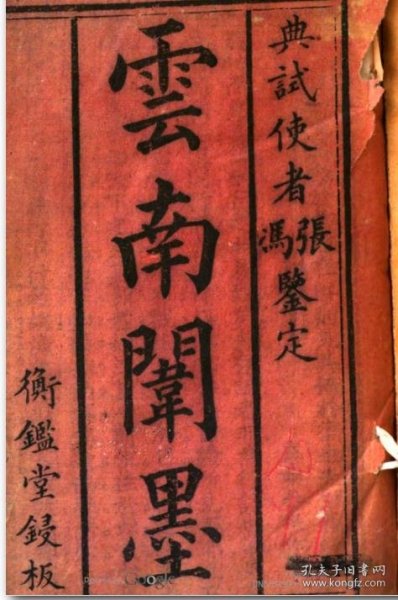 典試使者張馮鑒定
雲南闈墨
衡鑑堂鋟板
Google
孔夫子旧书网
www.kongfz.com